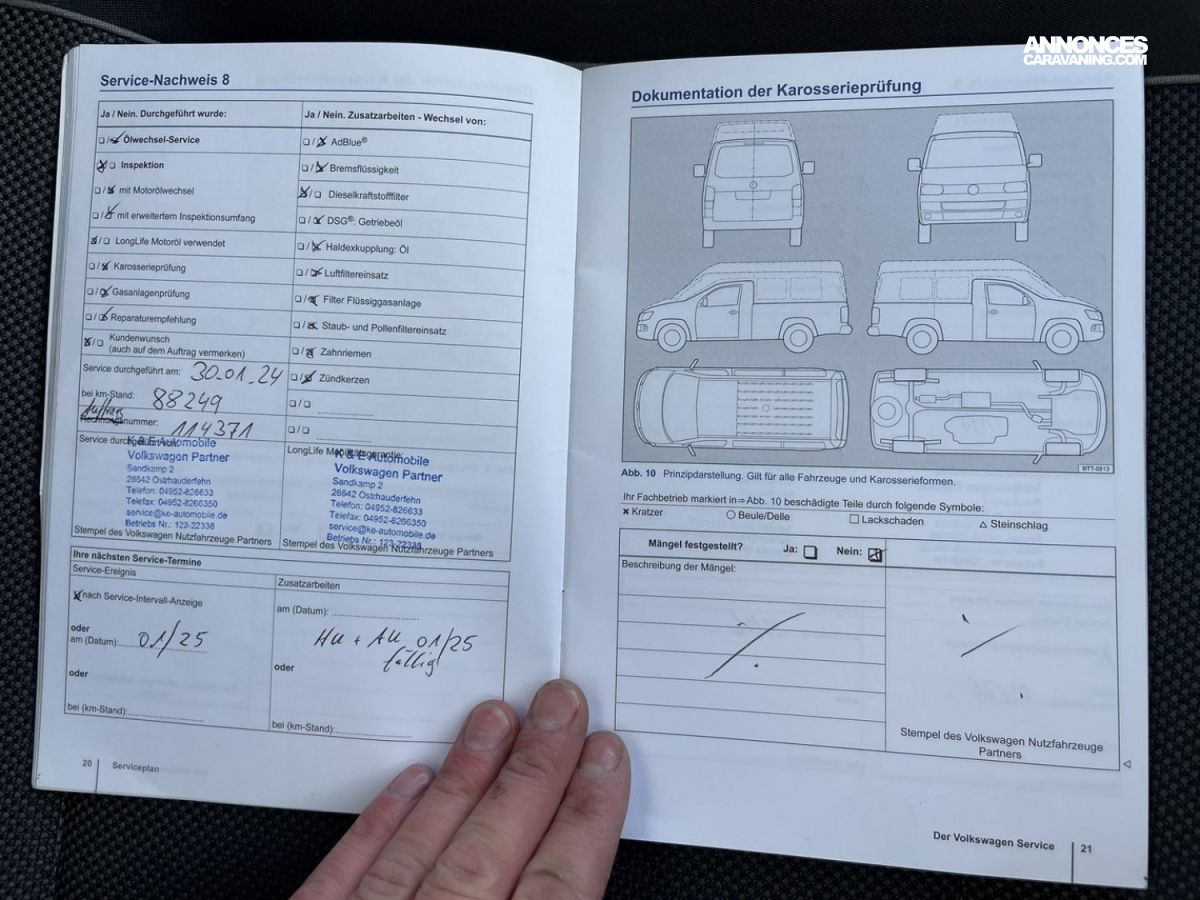 ANNONCES
CARAVANING.COM
Service-Nachweis 8
Ja / Nein. Durchgeführt wurde:
Ölwechsel-Service
Inspektion
mit Motorölwechsel
mit erweitertem Inspektionsumfang
LongLife Motoröl verwendet
Karosserieprüfung
Gasanlagenprüfung
Reparaturempfehlung
Kundenwunsch
(auch auf dem Auftrag vermerken)
Service durchgeführt am: 30.01.24
bei km-Stand: 88249
Auftrag
Rechnungsnummer: 114371
Service durchgeführt von:
K & E Automobile
Volkswagen Partner
Sandkamp 2
26842 Ostrhauderfehn
Telefon: 04952-826633
Telefax: 04952-8266350
service@ke-automobile.de
Betriebs Nr.: 123-22338
Stempel des Volkswagen Nutzfahrzeuge Partners
Ja / Nein. Zusatzarbeiten - Wechsel von:
AdBlue®
Bremsflüssigkeit
Dieselkraftstofffilter
DSG®: Getriebeöl
Haldexkupplung: Öl
Luftfiltereinsatz
Filter Flüssiggasanlage
Staub- und Pollenfiltereinsatz
Zahnriemen
Zündkerzen
LongLife Mobilitätsgarantie:
K & E Automobile
Volkswagen Partner
Sandkamp 2
26842 Ostrhauderfehn
Telefon: 04952-826633
Telefax: 04952-8266350
service@ke-automobile.de
Betriebs Nr.: 123-22338
Stempel des Volkswagen Nutzfahrzeuge Partners
Ihre nächsten Service-Termine
Service-Ereignis
nach Service-Intervall-Anzeige
oder
am (Datum): 01/25
oder
bei (km-Stand):
Zusatzarbeiten
am (Datum):
HU + AU 01/25
fällig
oder
bei (km-Stand):
20 Serviceplan
Dokumentation der Karosserieprüfung
BTT-0513
Abb. 10 Prinzipdarstellung. Gilt für alle Fahrzeuge und Karosserieformen.
Ihr Fachbetrieb markiert in ⇒ Abb. 10 beschädigte Teile durch folgende Symbole:
× Kratzer ○ Beule/Delle □ Lackschaden △ Steinschlag
Mängel festgestellt? Ja: Nein:
Beschreibung der Mängel:
Stempel des Volkswagen Nutzfahrzeuge
Partners
Der Volkswagen Service 21